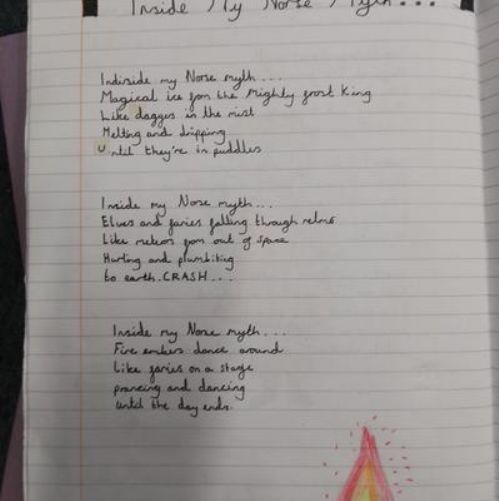 Inside My Norse Myth...
Indside my Norse myth...
Magical ice from the Mighty frost King
Like daggers in the mist
Melting and dripping
Until they're in puddles
Inside my Norse myth...
Elves and faries falling through relms
Like meteors from out of space
Hurling and plumbiting
to earth. CRASH...
Inside my Norse myth...
Fire embers dance around
Like faries on a stage
prancing and dancing
Until the day ends.